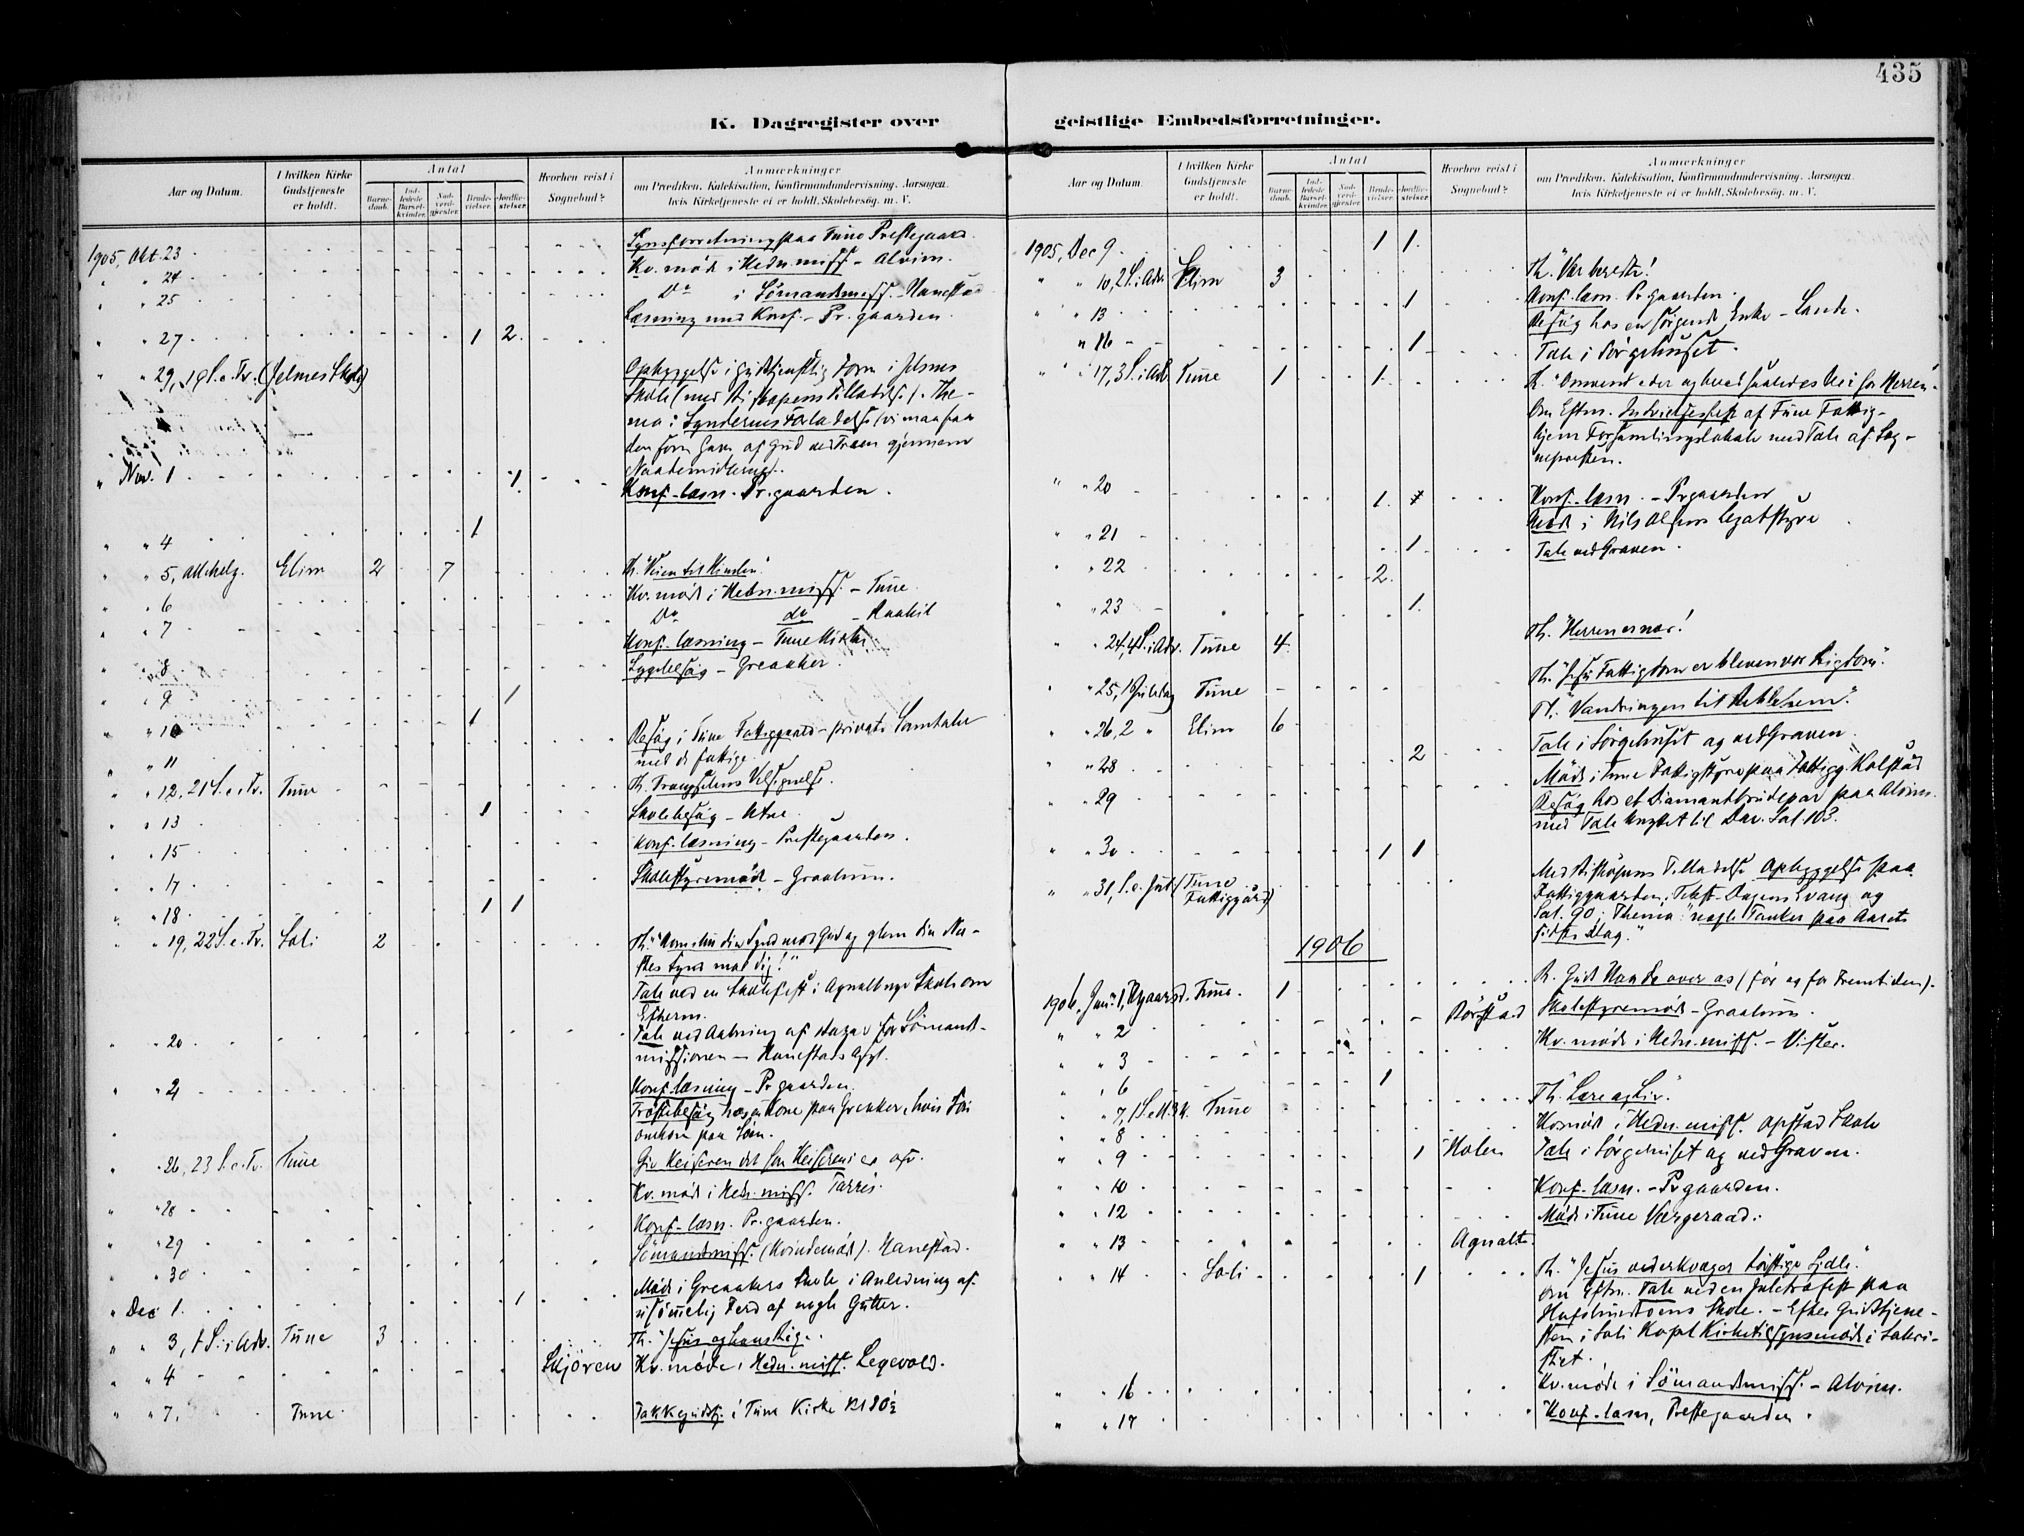 435
K. Dagregister over
Aar og Datum.
I hvilken Kirke Gudstjeneste er holdt.
Antal
Barnedaab.
Indledede Barselkvinder.
Nadverdgjester.
Brudevielser.
Jordfæstelser.
Hvorhen reist i Sognebud?
Anmærkninger
om Prædiken, Katekisation, Konfirmandundervisning, Aarsagen, hvis Kirketjeneste ei er holdt, Skolebesøg, m. V.
1905, Okt. 23 Synsforretning paa Tune Prestegaard.
" " 24 Kv. møde i Hedn. miss. - Alvim.
" " 25 Do i Sömandsmiss. - Hanestad
Læsning med Konf. - Pr. gaarden.
" " 27 1 2
" " 29, 19 S. e. Tr. (Jelmes Skole) Opbyggelse i gudstjenstlig Form i Jelmes
Skole (med Biskopens Tilladelse). The-
ma: Syndernes Forladelse (vi maa faa
den som Gave af Gud ved Troen gjennem
Naademidlerne).
" Nov. 1 1. Konf. læsn. Pr. gaarden.
" " 4 1
" " 5, Allehelg. Elim 2 7 Th. "Veien til Himlen"
" " 6 Kv. møde i Hedn. miss. - Tune.
" " 7 Do do - Raakil
" " 8 Konf. læsning - Tune Kirke
Sygebesøg - Greaaker.
" " 9 1
" " 10 1
" " 11 Besøg i Tune Fattiggaard - private Samtaler
med de fattige.
" " 12, 21 S. e. Tr. Tune Th. Trængselens Velsignelse.
" " 13 1 Skolebesøg - Atne.
" " 15 Konf. læsning - Prestegaarden.
" " 17 Skolestyremøde - Graalum.
" " 18 1 1
" " 19, 22 S. e. Tr. Soli 2 Th. "Kom ihu din Synd mod Gud og glem din Næ-
stes Synd mod dig!"
Tale ved en Skolefest i Agnalt nye Skole om
Efterm.
" " 20 Tale ved Aabning af Bazar for Sömands-
missionen - Hanestads
" " 21 Konf. læsning - Pr. gaarden.
Trøstebesøg hos en Kone paa Greaaker, hvis Søn
omkom paa Søen.
" " 26, 23 S. e. Tr. Tune Giv Keiseren det som Keiserens er osv.
" " 28 Kv. møde i Hedn. miss. Tarris.
" " 29 Konf. læsn. Pr. gaarden.
" " 30 Sömandsmiss. (Kvindemøde). Hanestad.
" Dec. 1. 1 Møde i Greaakers Skole i Anledning af
usömmelig Ferd af nogle Gutter.
" " 3, 1 S. i Adv. Tune 3 Th. "Jesus og hans Rige."
" " 4 Skjören Kv. møde i Hedn. miss. Legevold.
" " 7. Tune Takkegudstj. i Tune Kirke
geistlige Embedsforretninger.
Aar og Datum.
I hvilken Kirke Gudstjeneste er holdt.
Antal
Barnedaab.
Indledede Barselkvinder.
Nadverdgjester.
Brudevielser.
Jordfæstelser.
Hvorhen reist i Sognebud?
Anmærkninger
om Prædiken, Katekisation, Konfirmandundervisning, Aarsagen, hvis Kirketjeneste ei er holdt, Skolebesøg, m. V.
1905, Dec 9 1 1
" " 10, 2 S. i Adv. Elim 3 Th. "Vær beredt!"
" " 13 1 Konf. læsn. Pr. gaarden.
Besøg hos en sørgende Enke - Sande.
" 16 1 Tale i Sørgehuset.
" " 17, 3 S. i Adv. Tune 1 1 Th. "Omvend eder og bered saaledes Vei for Herren".
Om Eftm. Indvielsesfest af Tune Fattig-
hjems Forsamlingslokale med Tale af Sog-
nepresten.
" " 20 1 Konf. læsn. - Pr gaarden
Møde i Nils Olsens Legatstyre
" " 21 1 Tale ved Graven.
" " 22 2
" " 23 1.
" " 24, 4 S. i Adv. Tune 4 Th. "Herren er nær!"
" " 25, 1 Juledag Tune Th. "Jesu Fattigdom er bleven vor Rigdom".
" " 26, 2 " Elim 6 Th. "Vandringen til Betlehem".
" " 28 2 Tale i Sørgehuset og ved Graven.
" " 29 Møde i Tune Fattigstyre paa Fattigg. Kalstad
Besøg hos et Diamantbrudepar paa Alvim
med Tale knyttet til Dav. Sal. 103.
" " 30 1 1
" " 31, S. e. Jul (Tune Fattiggård) Med Biskopens Tilladelse Opbyggelse paa
Fattiggaarden, Tekst Dagens Evang. og
Sal. 90; Thema: "nogle Tanker paa Aarets
sidste Dag."
1906
1906, Janr. 1, Nyaarsd. Tune. 1 Th. Guds Haand over os (før og for Fremtiden).
" " 2 Börstad Skolestyremøde - Graalum.
" " 3 Kv. møde i Hedn. miss. - Vister.
" " 6 1
" " 7, 1 S. e. H. 3 K. Tune Th. "Lære og Liv".
" " 8 Kv. møde i Hedn. miss. Opstad Skole
" " 9 1 Holen Tale i Sørgehuset og ved Graven.
" " 10 Konf. læsn. - Pr gaarden.
" " 12 Møde i Tune Vergeraad.
" " 13 Agnalt.
" " 14 Soli 1 Th. "Jesus vederkvæger tørstige Sjæle".
Om Eftm. Tale ved en Juletræfest paa
Hafslundsøens Skole. - Efter Gudstjene-
sten i Soli Kapel Kirketilsynsmøde i Sakri-
stiet.
" " 16 Kv. møde i Sömandsmiss. - Alvim.
" " 17 Konf. læsn, Prestegaarden.